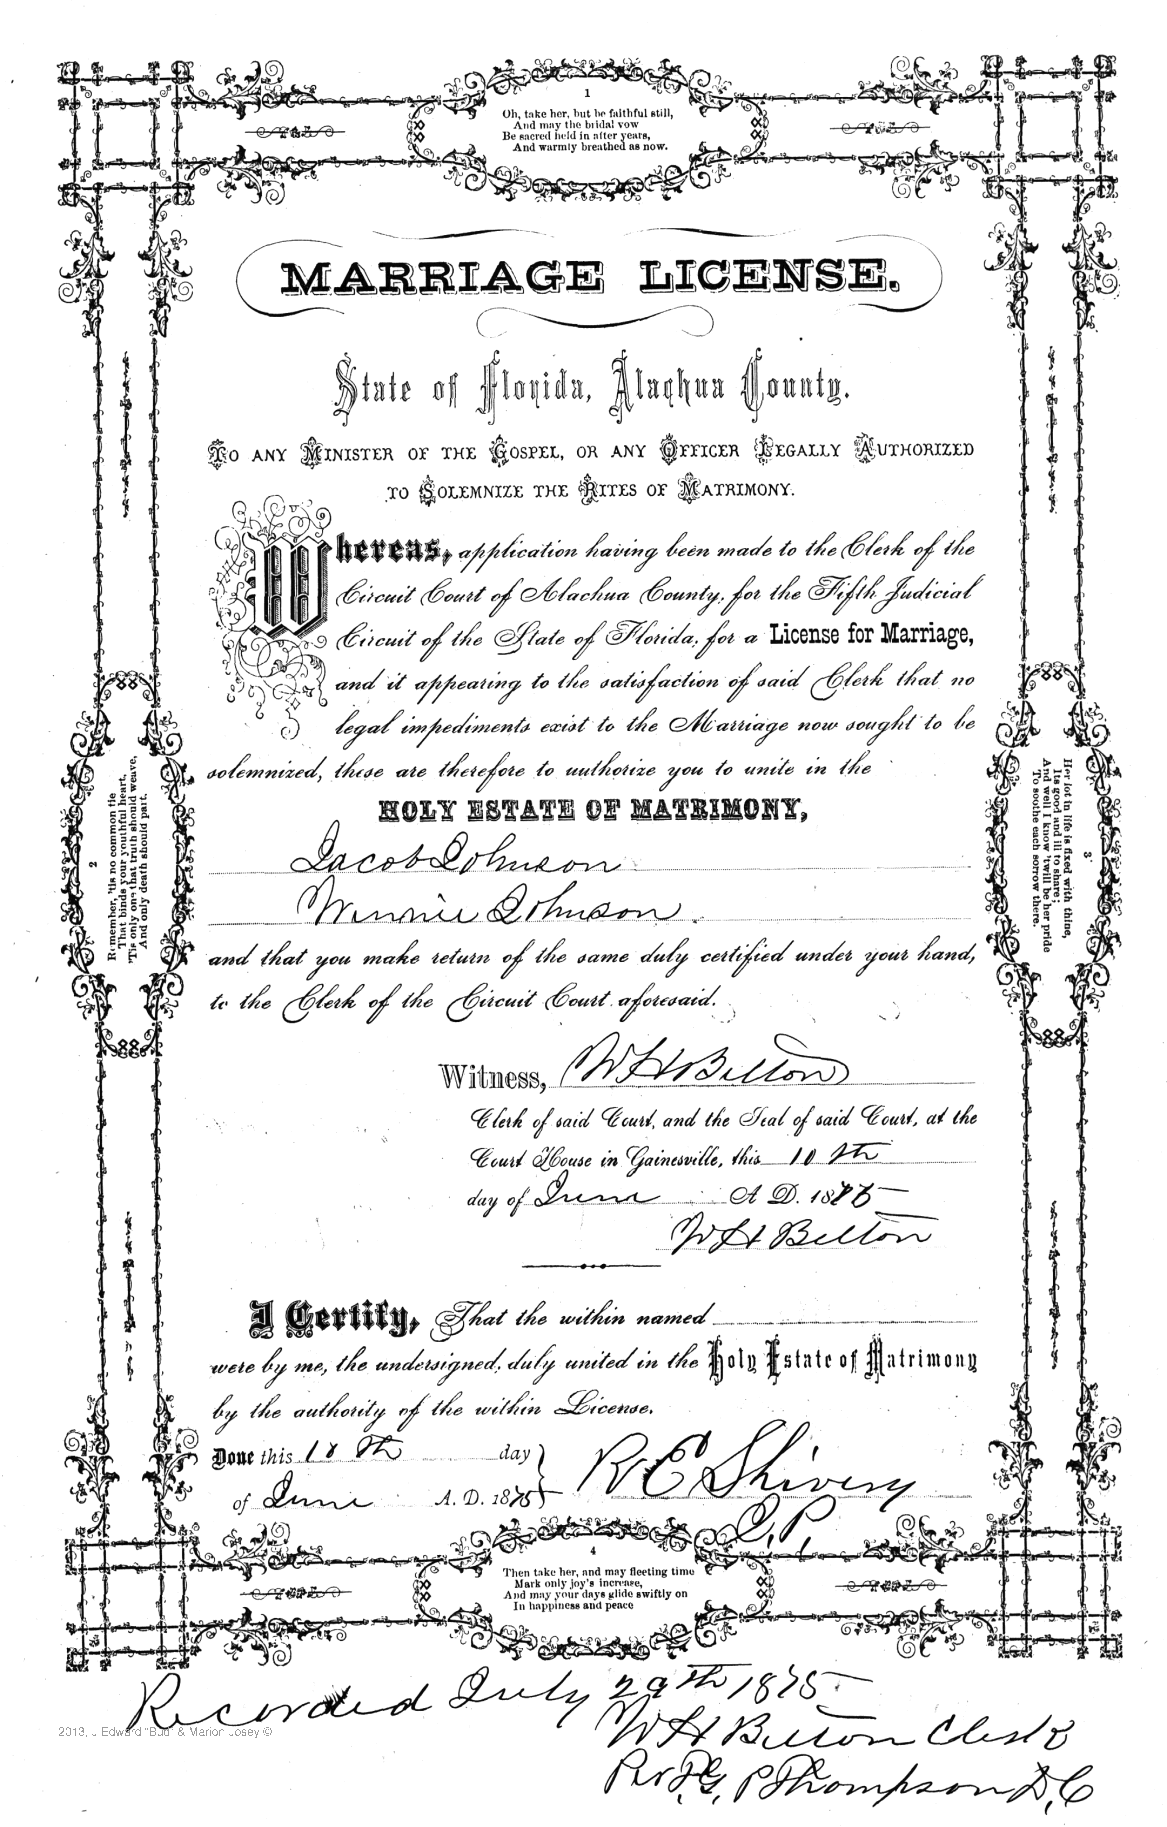 1
Oh, take her, but be faithful still,
And may the bridal vow
Be sacred held in after years,
And warmly breathed as now.
MARRIAGE LICENSE.
State of Florida, Alachua County.
TO ANY MINISTER OF THE GOSPEL, OR ANY OFFICER LEGALLY AUTHORIZED
TO SOLEMNIZE THE RITES OF MATRIMONY.
Whereas, application having been made to the Clerk of the
Circuit Court of Alachua County, for the Fifth Judicial
Circuit of the State of Florida, for a License for Marriage,
and it appearing to the satisfaction of said Clerk that no
legal impediments exist to the Marriage now sought to be
solemnized, these are therefore to authorize you to unite in the
HOLY ESTATE OF MATRIMONY,
Jacob Johnson
Winnie Johnson
and that you make return of the same duly certified under your hand,
to the Clerk of the Circuit Court aforesaid.
2
Remember, 'tis no common tie
That binds your youthful heart,
'Tis only one that truth should weave,
And only death should part.
3
Her lot in life is fixed with thine,
Its good and ill to share;
And well I know 'twill be her pride
To soothe each sorrow there.
Witness, W H Belton
Clerk of said Court, and the Seal of said Court, at the
Court House in Gainesville, this 10th
day of June A D. 1875
W H Belton
I Certify, That the within named
were by me, the undersigned, duly united in the Holy Estate of Matrimony
by the authority of the within License.
Done this 10th day
of June A. D. 1875
R E Shivery
J.P.
4
Then take her, and may fleeting time
Mark only joy's increase,
And may your days glide swiftly on
In happiness and peace
Recorded July 29th 1875
W H Belton Clerk
Per F. G. P Thompson D, C
2013, J Edward "Bud" & Marion Josey ©